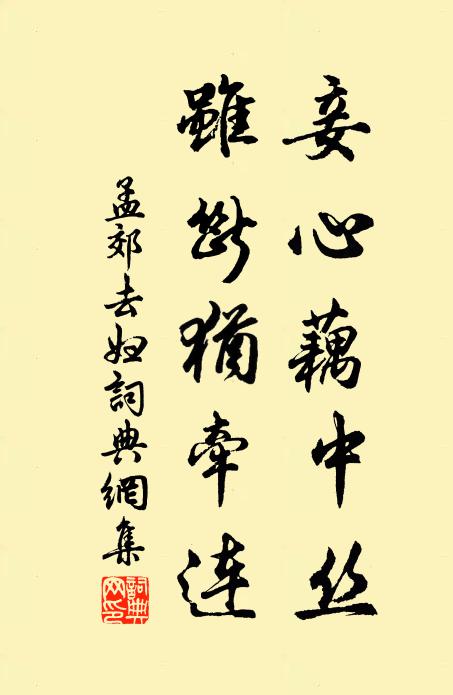 妾心藕中丝
虽断犹牵连
孟郊去妇词典網集
詞典网印